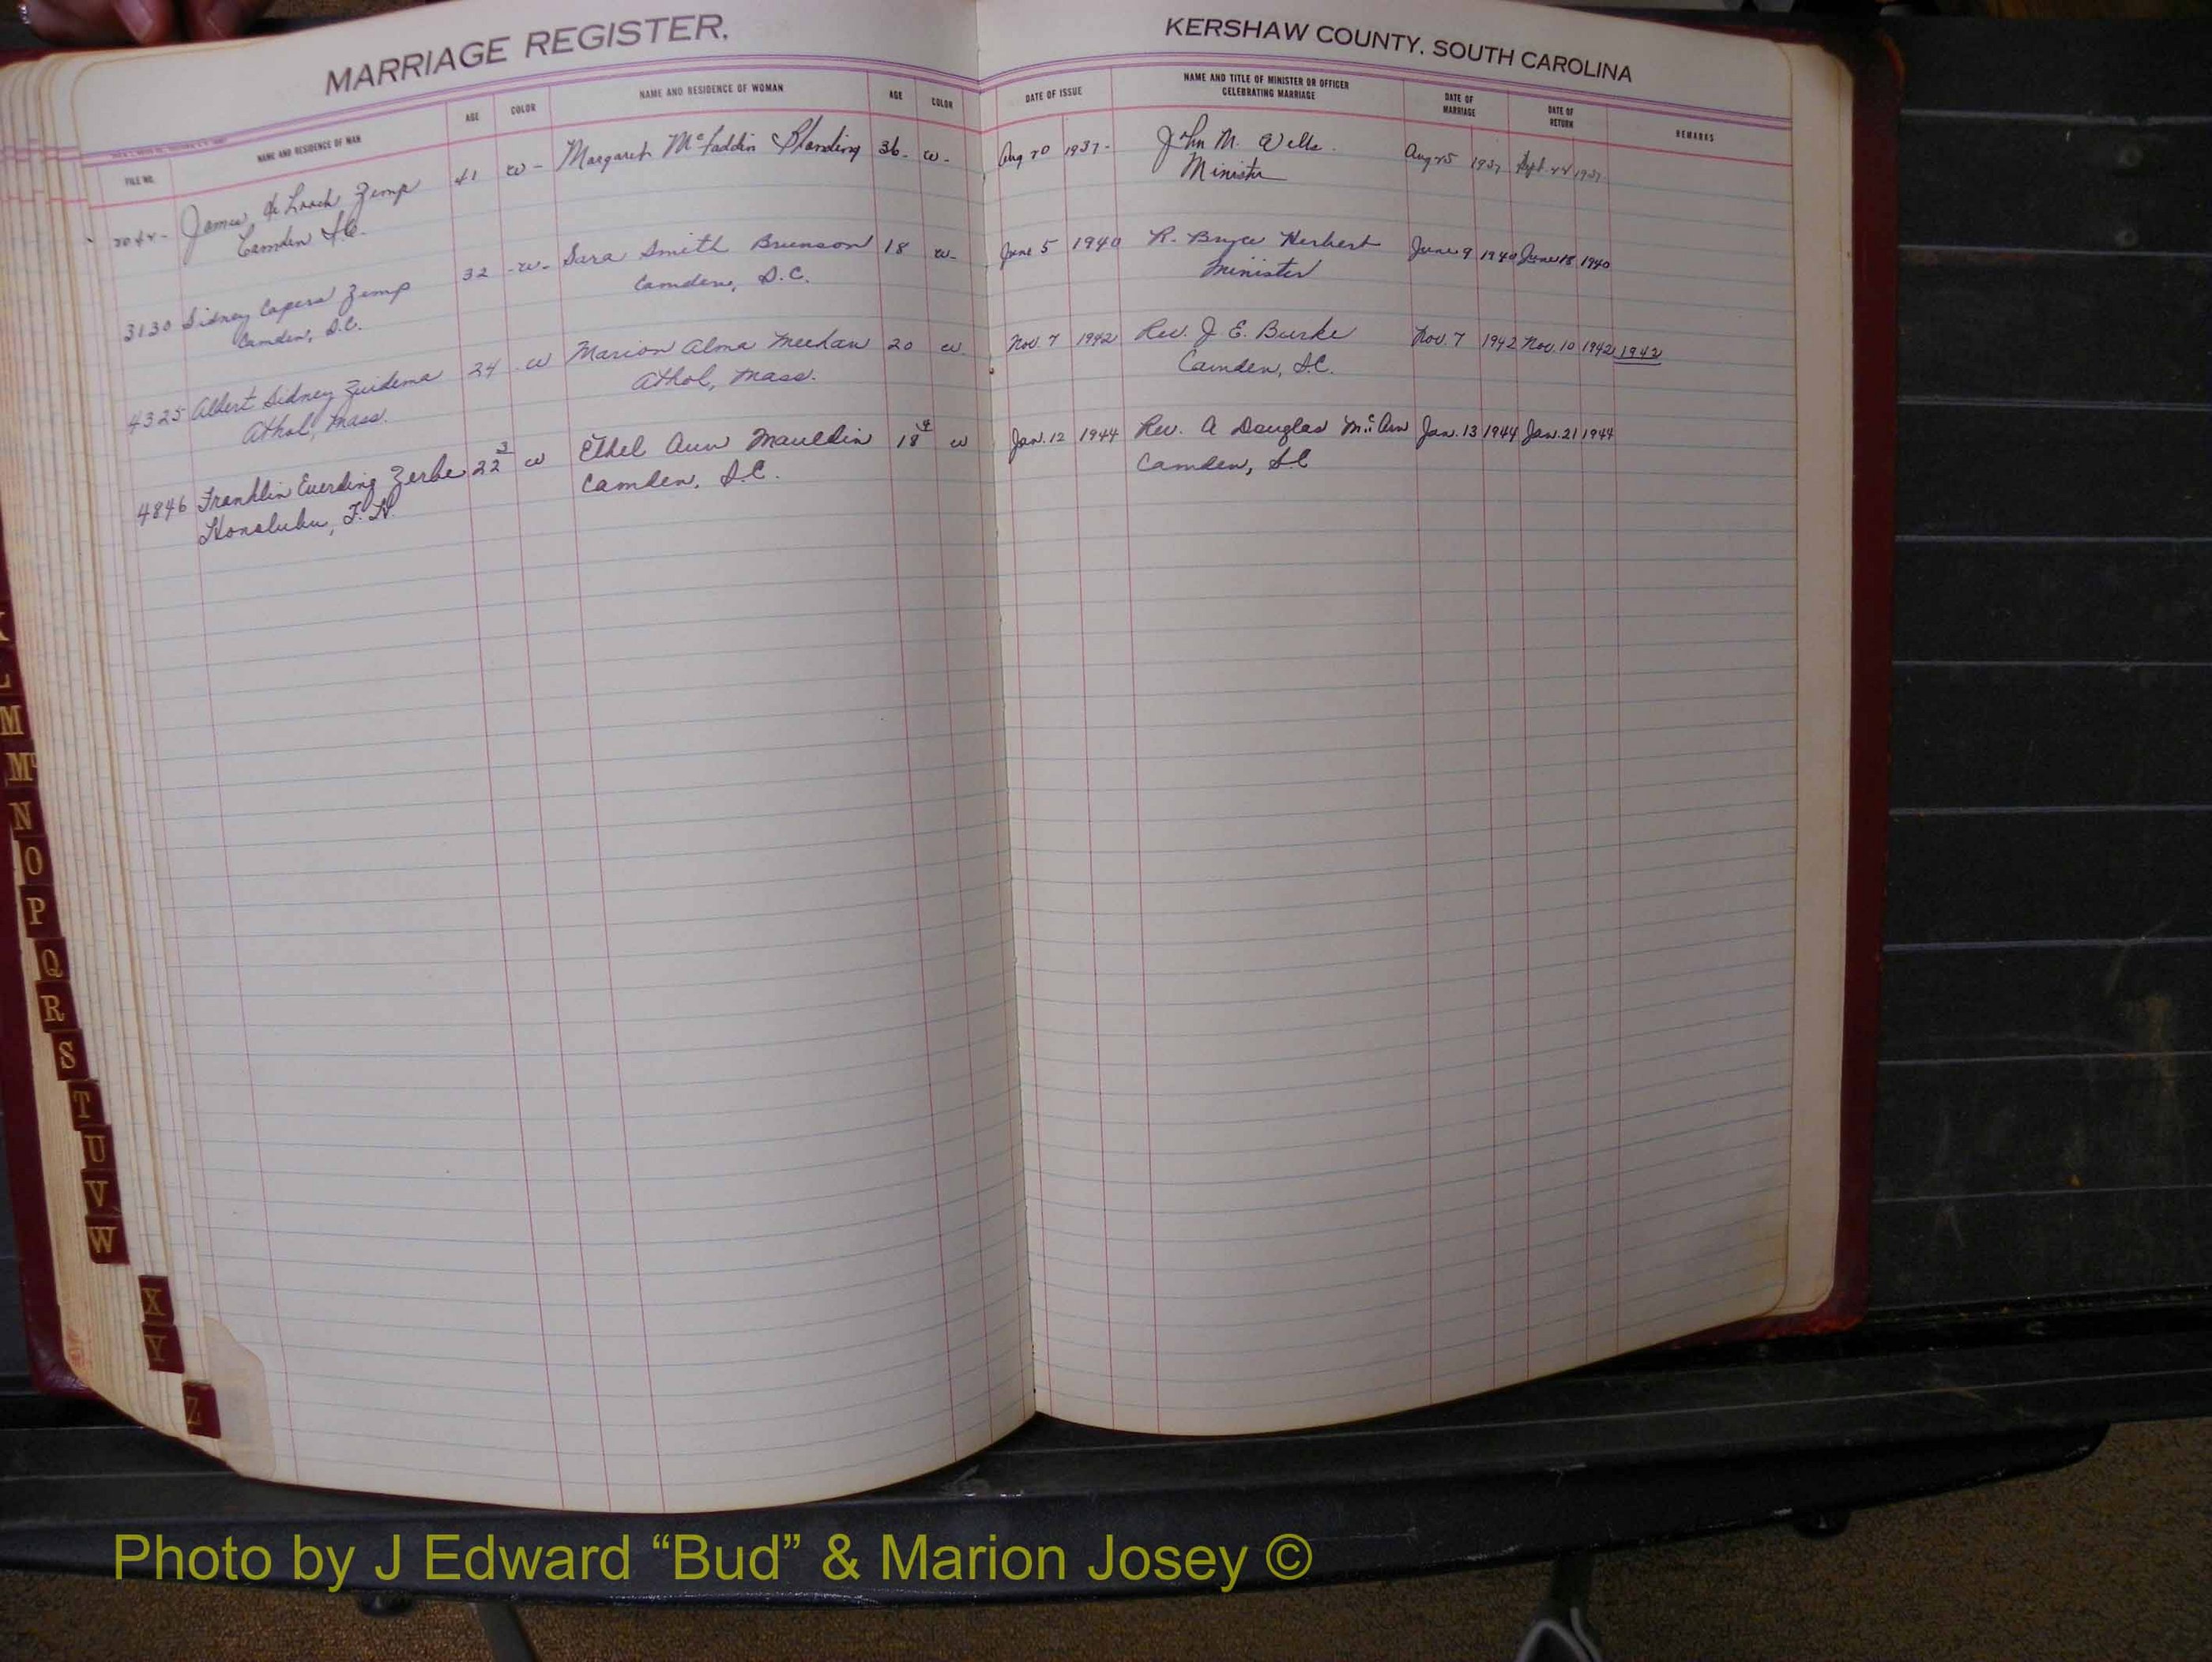 MARRIAGE REGISTER.
KERSHAW COUNTY. SOUTH CAROLINA
FILE NO. NAME AND RESIDENCE OF MAN AGE COLOR NAME AND RESIDENCE OF WOMAN AGE COLOR DATE OF ISSUE NAME AND TITLE OF MINISTER OR OFFICER CELEBRATING MARRIAGE DATE OF MARRIAGE DATE OF RETURN REMARKS
James de Loach Zemp 41 w- Margaret McFaddin Blanding 36- w- Aug 20 1937- John M. Wells. Aug 25 1937 Sept. 1937
Camden S.C. Minister
3130 Sidney Capers Zemp 32 -w- Sara Smith Brunson 18 w- June 5 1940 R. Bryce Herbert June 9 1940 June 18 1940
Camden, S.C. Camden, S.C. Minister
4325 Albert Sidney Zuidema 24 w Marion Alma Meehan 20 w Nov. 7 1942 Rev. J. E. Burke Nov. 7 1942 Nov. 10 1942 1942
Athol, Mass. Athol, Mass. Camden, S.C.
4846 Franklin Everding Zerbe 22 3 w Ethel Ann Mauldin 18 w Jan. 12 1944 Rev. A Douglas Jan. 13 1944 Jan. 21 1944
Honolulu, T.H. Camden, S.C. Camden, S.C
L
M
Mc
N
O
P
Q
R
S
T
U
V
W
X
Y
Z
Photo by J Edward “Bud” & Marion Josey ©